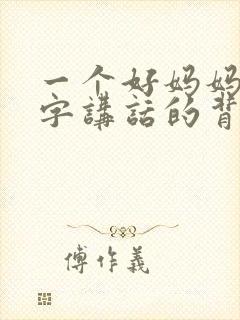 一个好妈妈
字講話的背
傅作義